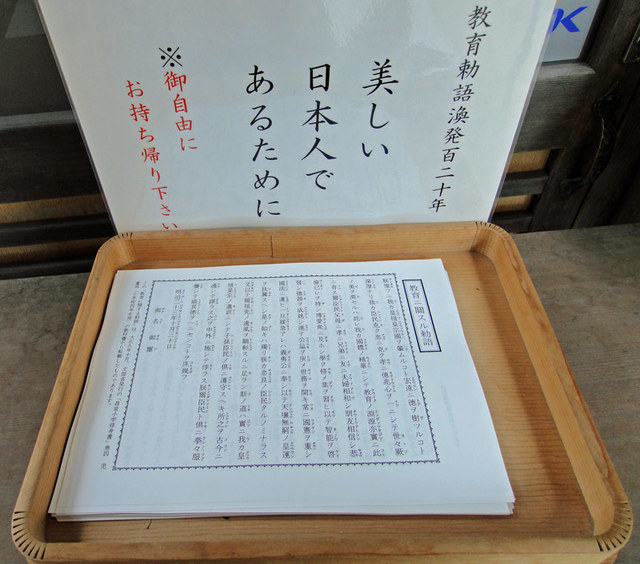 教育勅語渙発百二十年
美しい
日本人で
あるために
※御自由に
お持ち帰り下さい
K
教育ニ關スル勅語
朕惟フニ我カ皇祖皇宗國ヲ肇ムルコト宏遠ニ德ヲ樹ツルコト
深厚ナリ我カ臣民克ク忠ニ克ク孝ニ億兆心ヲ一ニシテ世々厥
ノ美ヲ濟セルハ此レ我カ國體ノ精華ニシテ教育ノ淵源亦實ニ此
ニ存ス爾臣民父母ニ孝ニ兄弟ニ友ニ夫婦相和シ朋友相信シ恭
儉己レヲ持シ博愛衆ニ及ホシ學ヲ修メ業ヲ習ヒ以テ智能ヲ啓
發シ德器ヲ成就シ進テ公益ヲ廣メ世務ヲ開キ常ニ國憲ヲ重シ
國法ニ遵ヒ一旦緩急アレハ義勇公ニ奉シ以テ天壤無窮ノ皇運
ヲ扶翼スヘシ是ノ如キハ獨リ朕カ忠良ノ臣民タルノミナラス
又以テ爾祖先ノ遺風ヲ顯彰スルニ足ラン斯ノ道ハ實ニ我カ皇
祖皇宗ノ遺訓ニシテ子孫臣民ノ俱ニ遵守スヘキ所之ヲ古今ニ
通シテ謬ラス之ヲ中外ニ施シテ悖ラス朕爾臣民ト俱ニ拳々服
膺シテ咸其德ヲ一ニセンコトヲ庶幾フ
明治二十三年十月三十日
御名御璽